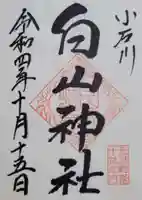 小石川
白山神社
令和四年十月十五日